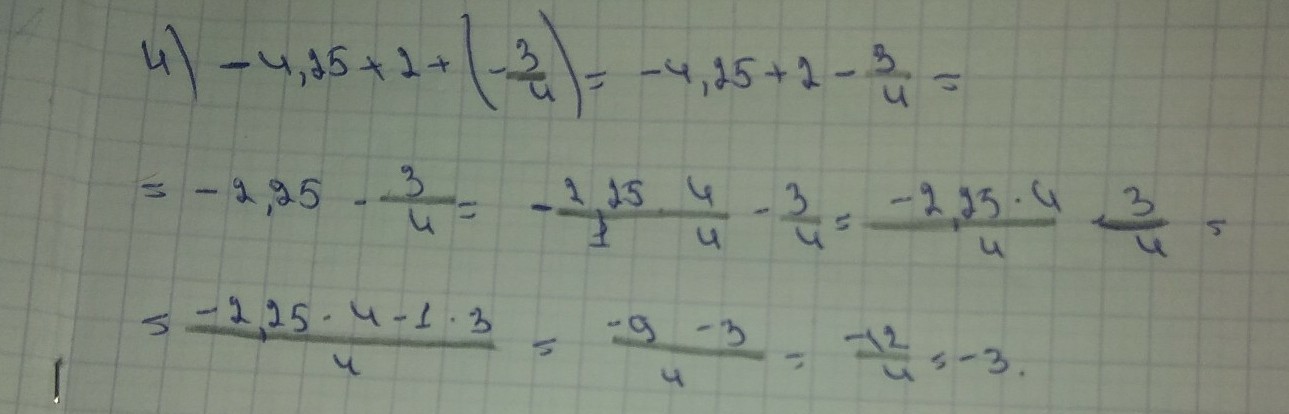 4) -4,25 + 2 + (-3/4) = -4,25 + 2 - 3/4 =
= -2,25 - 3/4 = - 2,25/1 · 4/4 - 3/4 = -2,25 · 4/4 - 3/4 =
= -2,25 · 4 - 1 · 3/4 = -9 -3/4 = -12/4 = -3.